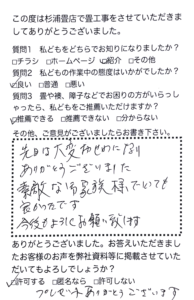 この度は杉浦畳店で畳工事をさせていただきま
してありがとうございました。
質問1　私どもをどちらでお知りになりましたか？
□チラシ　□ホームページ　☑紹介　□その他
質問2　私どもの作業中の態度はいかがでしたか？
☑良い　□普通　□悪い
質問3　畳や襖、障子などでお困りの方がいらっし
ゃったら、私どもをご推薦いただけますか？
☑推薦できる　□推薦できない　□分からない
その他、ご意見がございましたらお書き下さい。
先日は大変お世話になり
ありがとうございました
素敵な
良かったです
今後もよろしくお願い致します
ありがとうございました。お答えいただきまし
たお客様のお声を弊社資料等に掲載させていた
だいてもよろしでしょうか？
☑許可する　□匿名なら　□許可しない
プレゼントありがとうございます